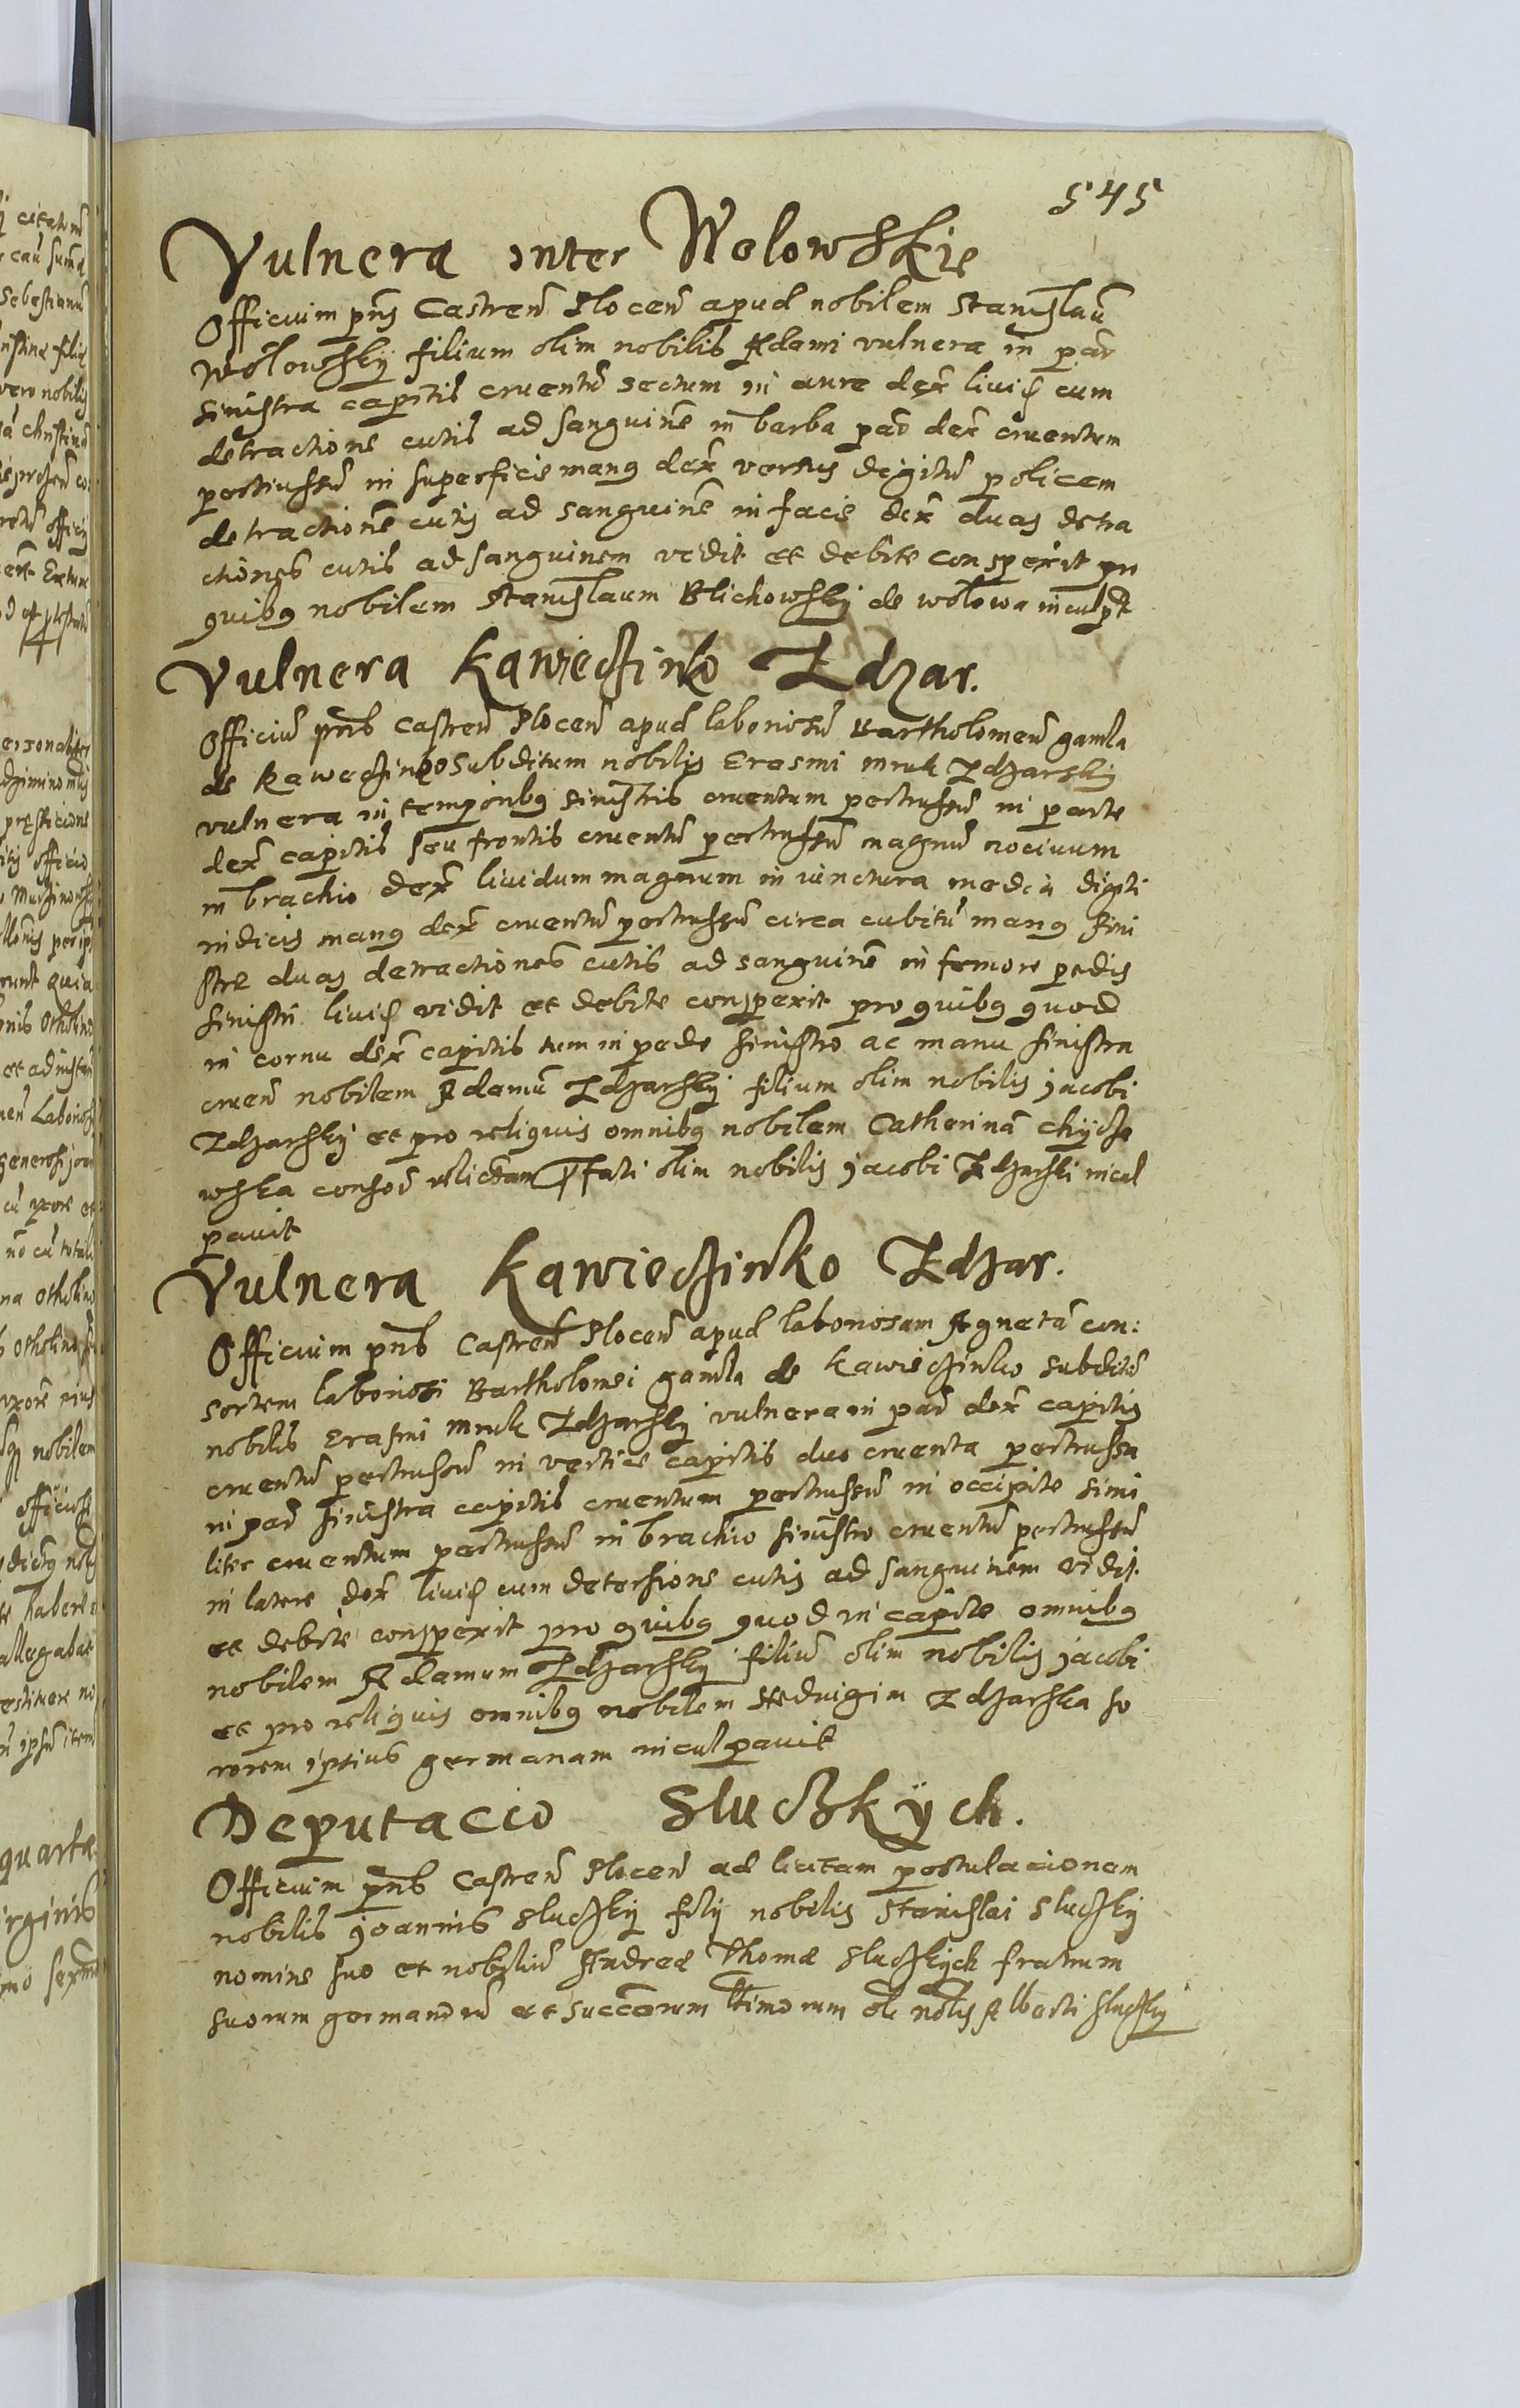 545
Vulnera inter Wolowskie
Officium pñs Castreñ Ploceñ apud nobilem Stanislaũ
Wolowskÿ filium olim nobilis Adami vulnera in par̃
sinistra capitis cruentũ sectum in aure dex̃ liuid̃ cum
detractione cutis ad sanguinẽ in barba par̃ dex̃ cruentum
pertrussũ in superficie manus dex̃ versus digitũ policem
detractionẽ cutis ad sanguinẽ in facie dex̃ duas detra
ctiones cutis ad sanguinem vidit et debite conspexit pro
quibus nobilem Stanislaum Blichowskÿ de Wolowa inculp̃t
Vulnera Kawieczinko Zdzar.
Officiũ pñs Castreñ Ploceñ apud laboriosũ Bartholomeũ gamla
de Kaweczinko subditum nobilis Erasmi mruk Zdzarskÿ
vulnera in temporibus sinistris cruentum pertrussũ in parte
dex̃ capitis seu frontis cruentũ pertrussũ magnũ nociuum
in brachio dex̃ liuidum magnum in iunctura media digiti
indicis manus dex̃ cruentũ pertrussũ circa cubitũ manus sini
stre duas detractiones cutis ad sanguinẽ in femore pedis
sinistri liuid̃ vidit et debite conspexit pro quibus quod
in cornu dex̃ capitis tum in pede sinistro ac manu sinistra
crueñ nobilem Adamũ Zdzarskÿ filium olim nobilis Jacobi
Zdzarskÿ et pro reliquis omnibus nobilem Catherinã chÿcze
wska consor̃ relictam p̃fati olim nobilis Jacobi Zdzarski incul
pauit
Vulnera Kawieczinko Zdzar.
Officium pñs Castreñ Ploceñ apud laboriosam Agnetã con:
sortem laboriosi Bartholomei gamla de Kawieczinko subditũ
nobilis Erasmi mruk Zdzarskÿ vulnera in par̃ dex̃ capitis
cruentũ pertrussũ in vertice capitis duo cruenta pertrussa
in par̃ sinistra capitis cruentum pertrussũ in occipite simi
liter cruentum pertrussũ in brachio sinistro cruentũ pertrussũ
in latere dex̃ liuid̃ cum detersione cutis ad sanguinem vidit
et debite conspexit pro quibus quod in capite omnibus
nobilem Adamum Zdzarskÿ filiũ olim nobilis Jacobi
et pro reliquis omnibus nobilem Hedwigim Zdzarska so
rorem ipsius germanam inculpauit
Deputacio Sluczkÿch.
Officium pñs Castreñ Ploceñ ad licitam postulacionem
nobilis Joannis Sluczkÿ filÿ nobilis Stanislai Sluczkÿ
nomine suo et nobiliũ Andreæ Thomæ Sluczkÿch fratrum
suorum germanorũ et succorum ltimorum oli noblis Alberti Sluczkÿ